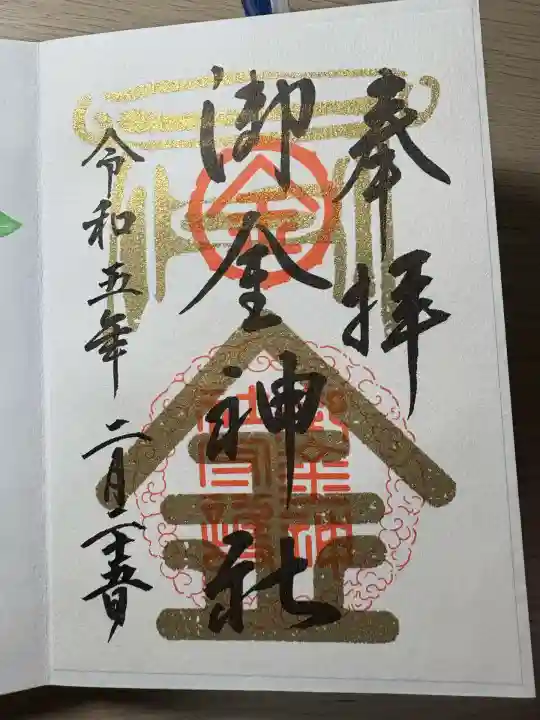 奉拝
御金神社
令和五年二月二十五日
金
御金神社